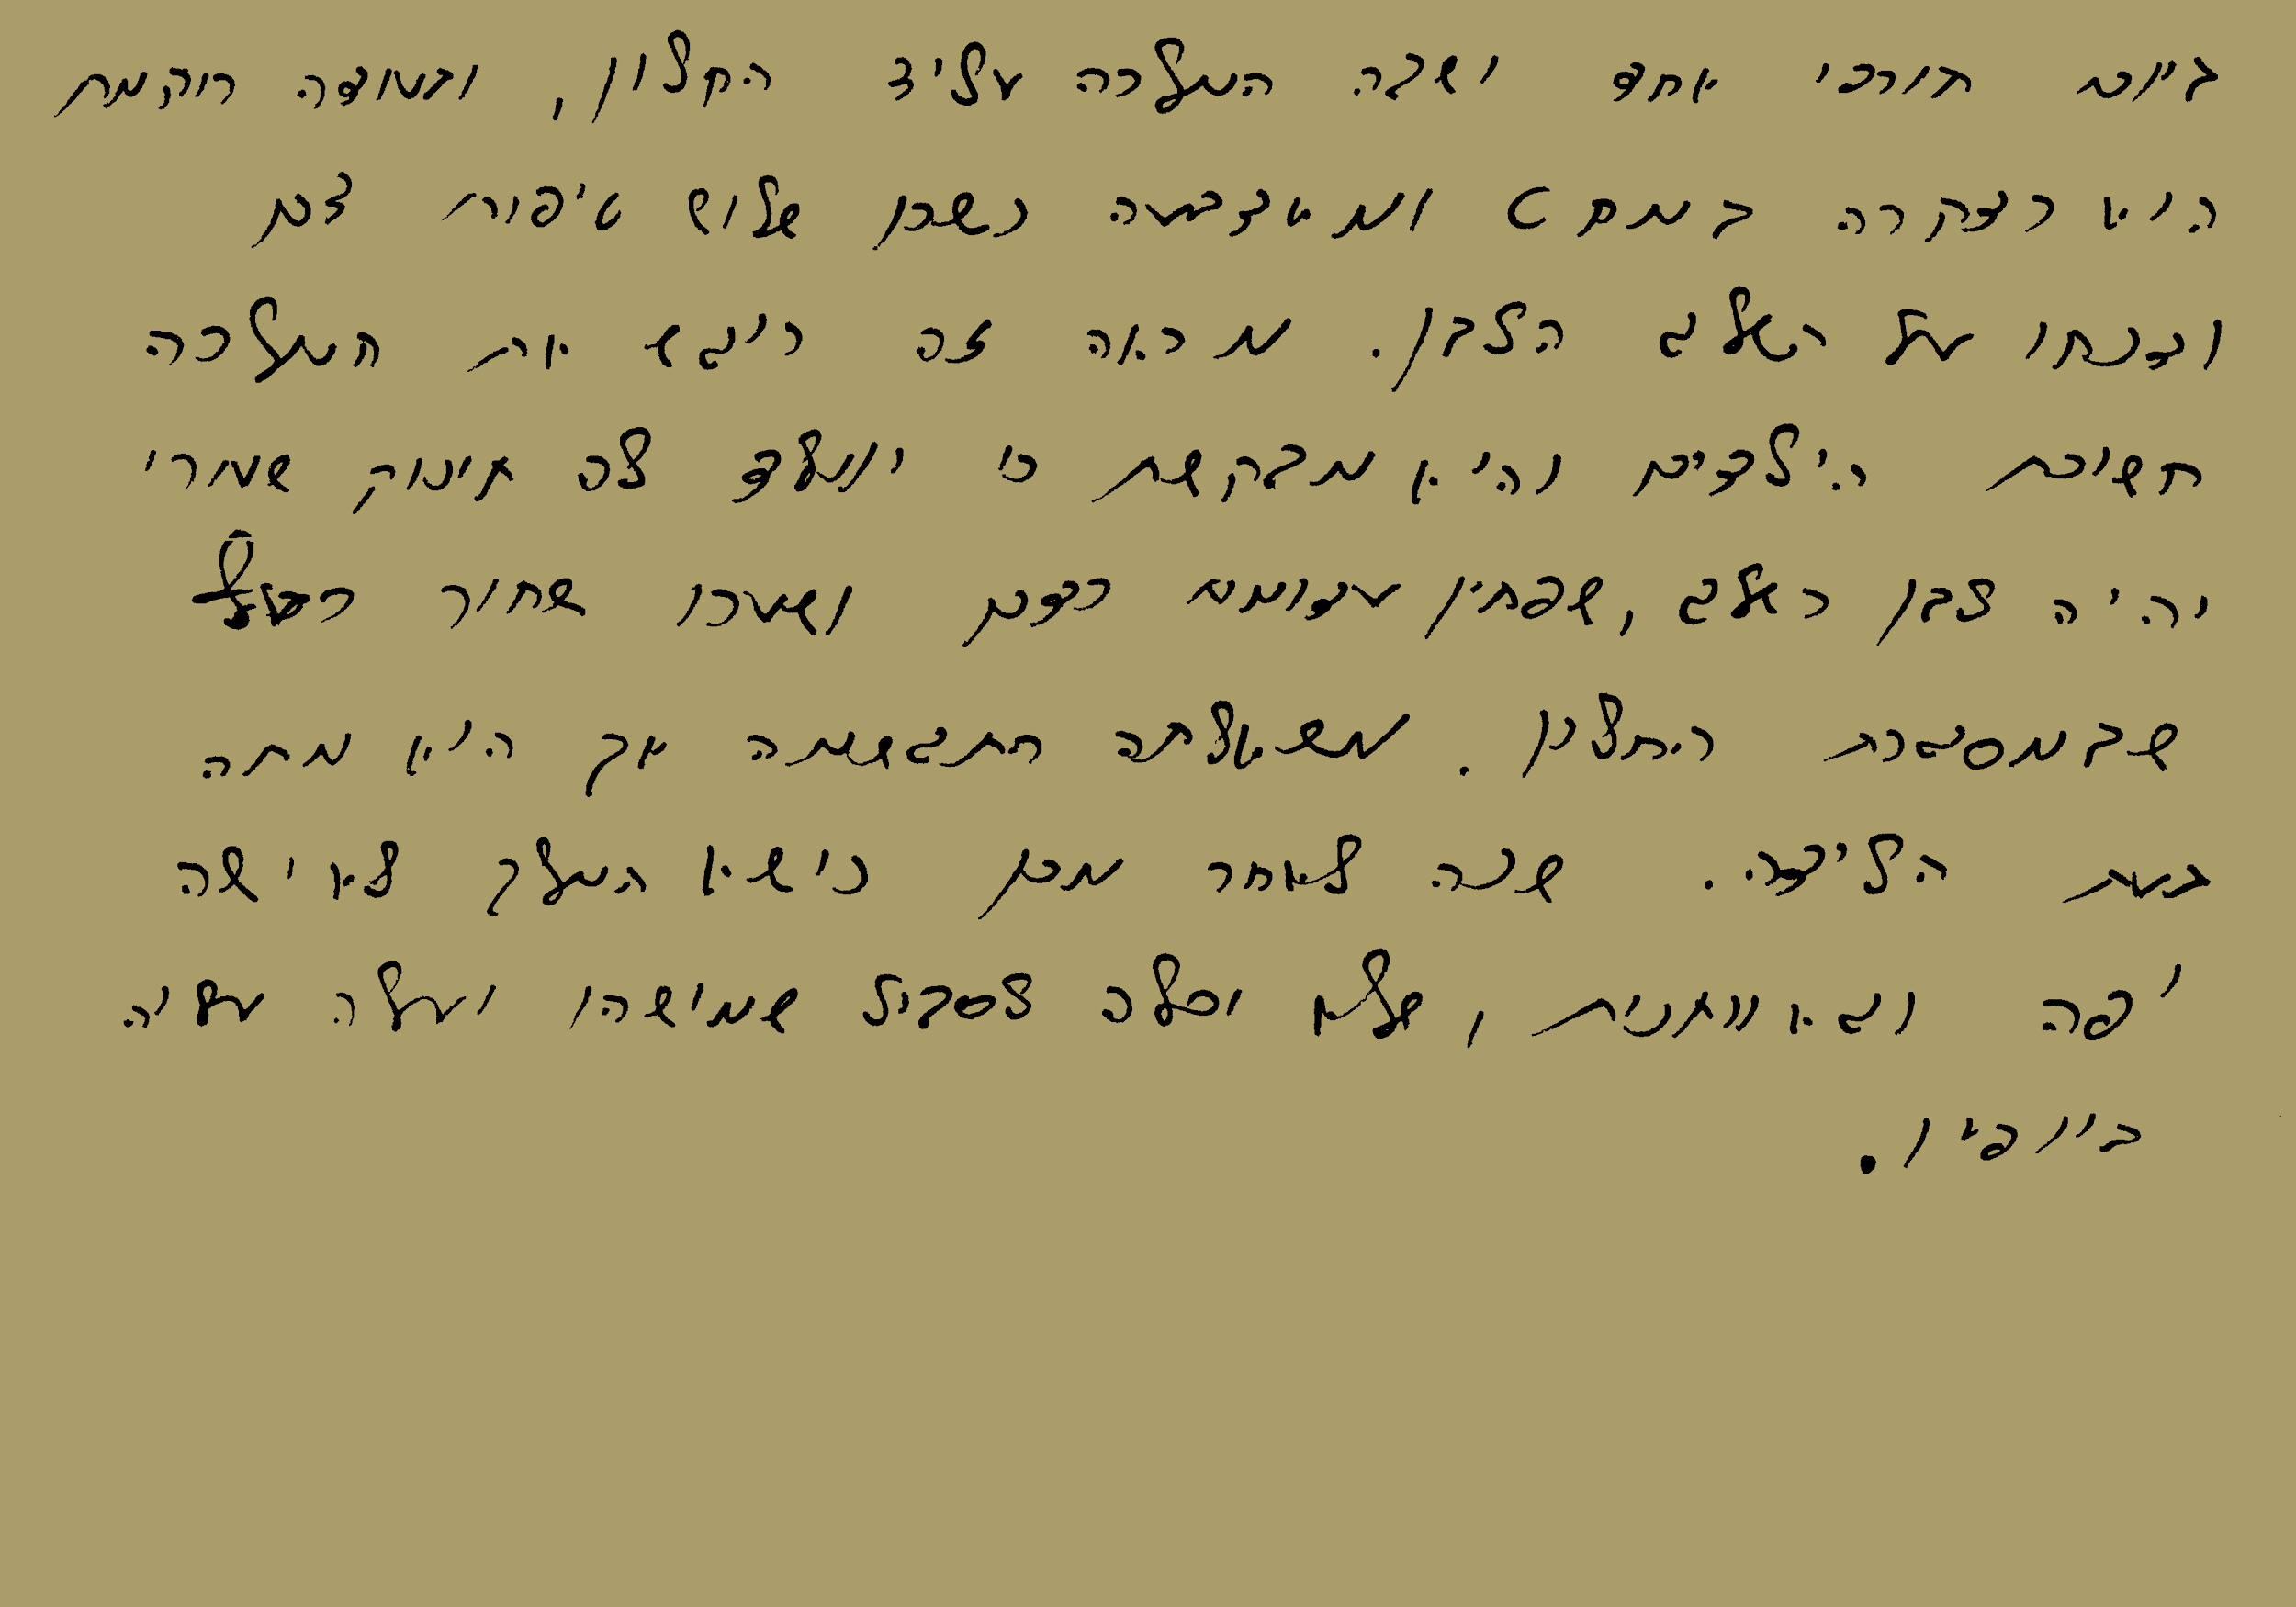 ביום חורפי אחד ישבה המלכה על יד החלון, ובעודה רוקמת
היא נדקרה במחט ומאצבעה נשרו שלוש טיפות דם
ונחו על השלג הלבן. מראה זה ריגש את המלכה
חשוכת הילדים והיא מבקשת כי יוולד לה תינוק שעורו
יהיה לבן כשלג, שפתיו אדומות כדם ושערו שחור כעץ
שבמסגרת החלון. משאלתה התגשמה אך היא מתה
בעת הלידה. שנה לאחר מכן נישא המלך לאישה
יפה וגאוותנית, שלא יכלה לסבול שמישהו יעלה עליה
ביופיו.